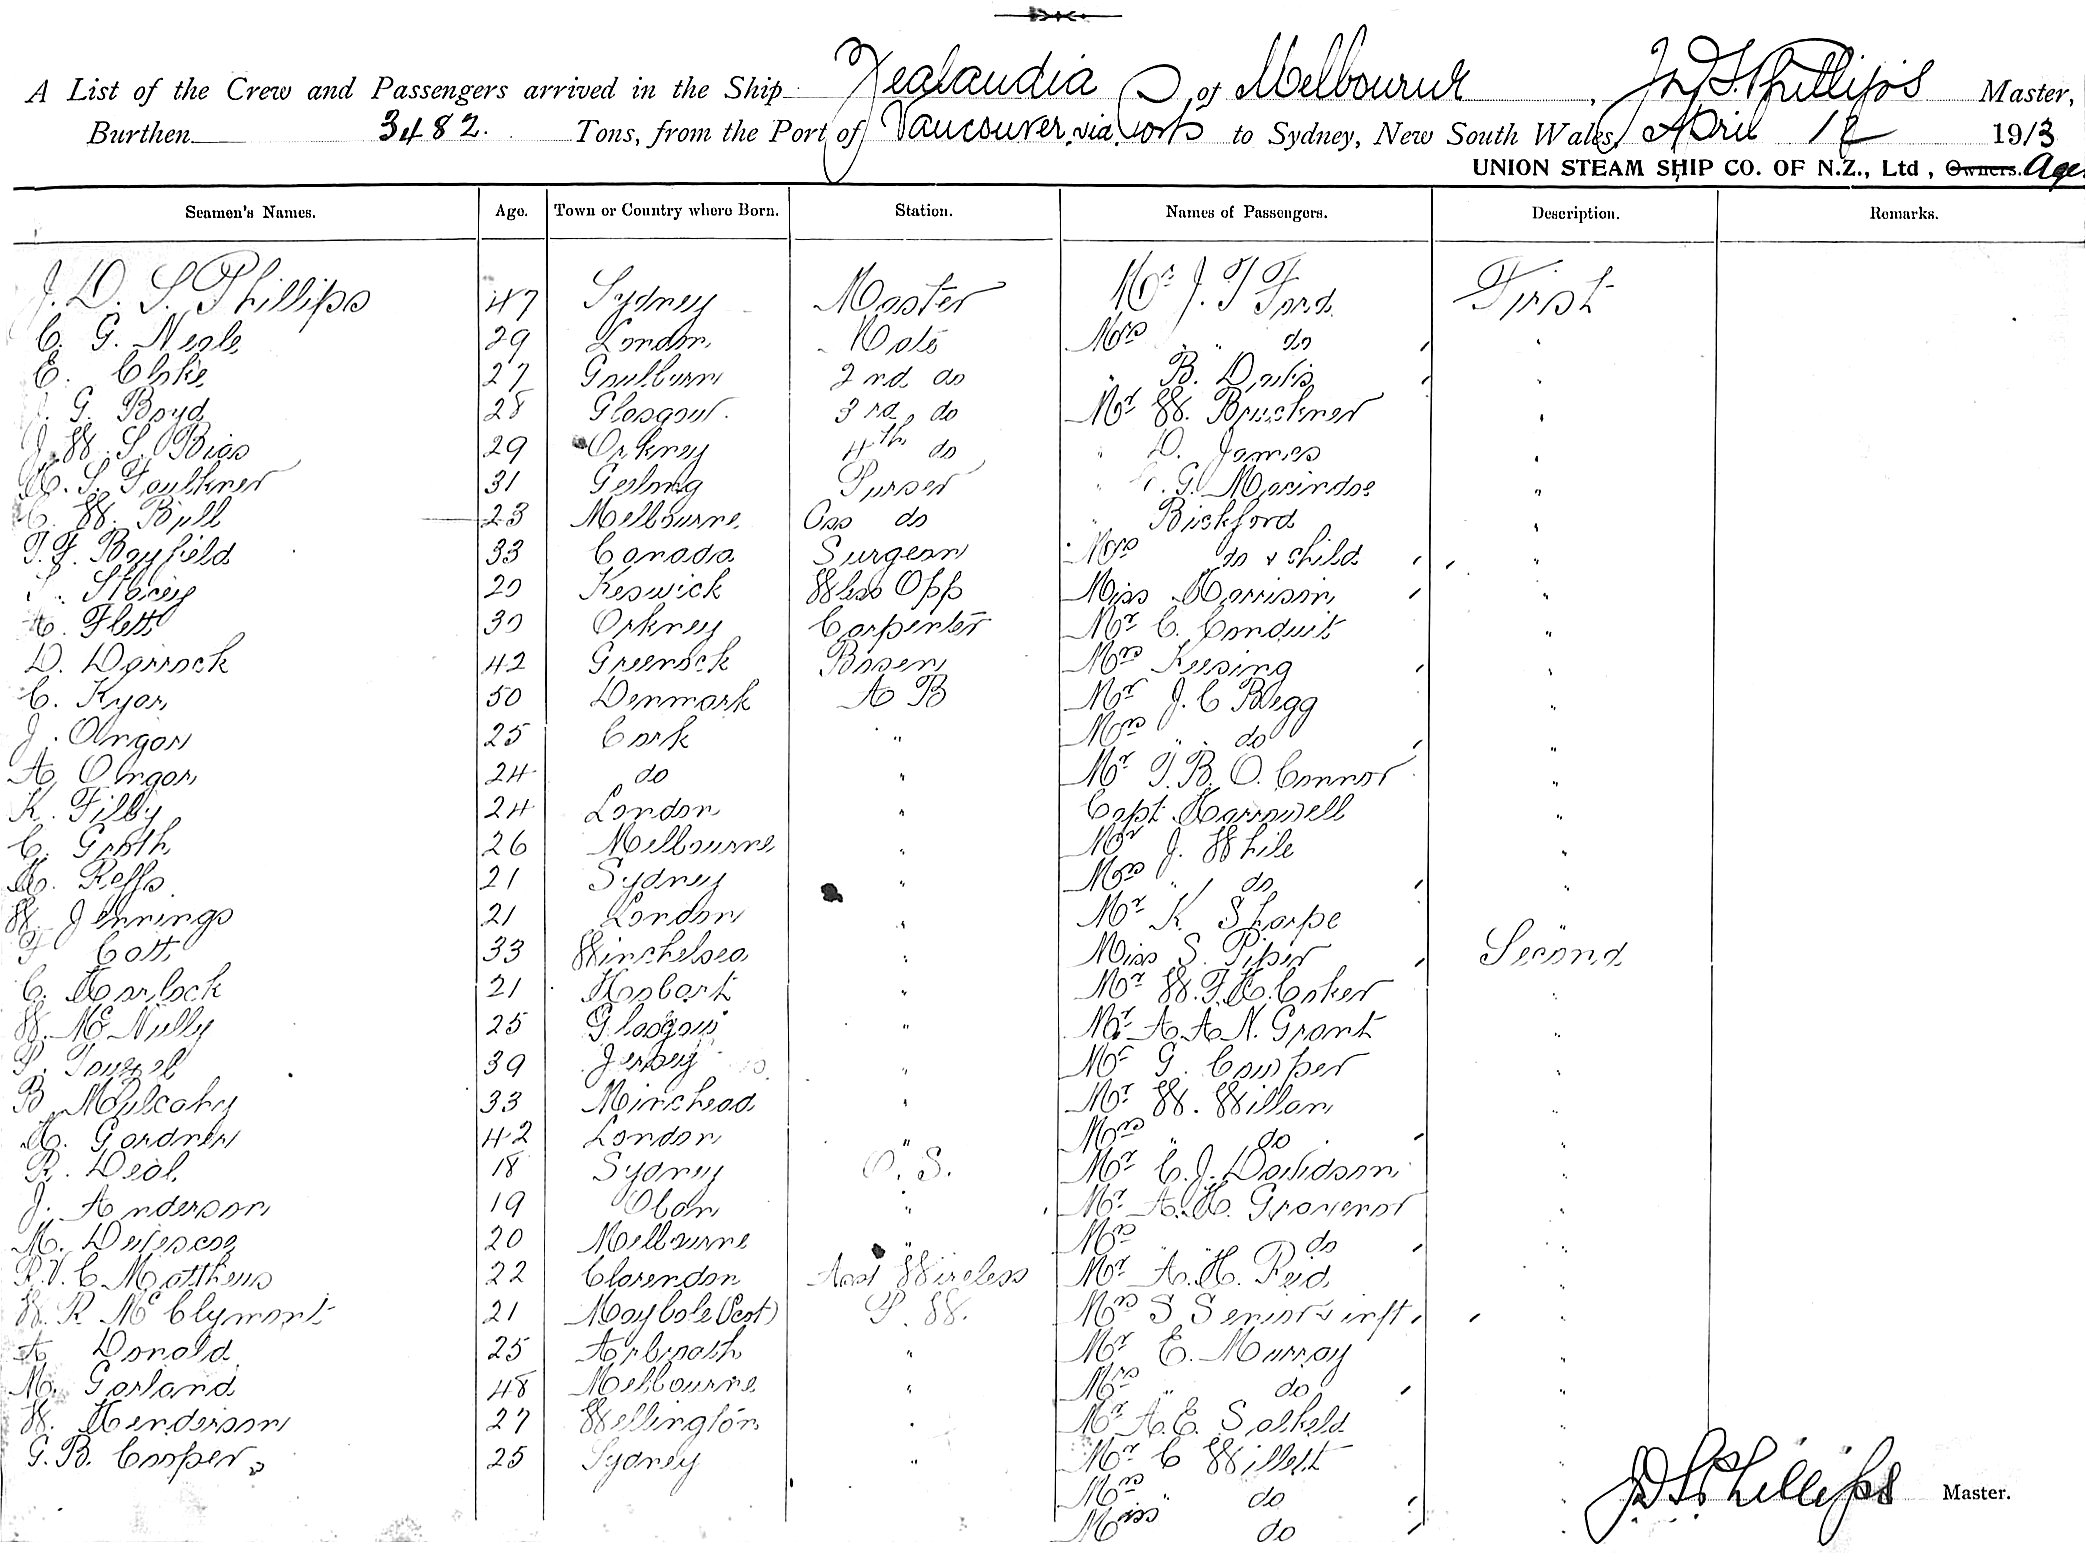 A List of the Crew and Passengers arrived in the Ship Zealandia of Melbourne, J.D.S. Phillips Master,
Burthen 3482. Tons, from the Port of Vancouver via Ports to Sydney, New South Wales, April 12 1913
UNION STEAM SHIP CO. OF N.Z., Ltd, Owners.
Seamen's Names. Age. Town or Country where Born. Station. Names of Passengers. Description. Remarks.
J. D. S. Phillips 47 Sydney Master Mr J. T Ford First
C. G. Neale 29 London Mate Mrs " do "
E. 27 Goulburn 2nd do " B. Davis "
J. G. Boyd 28 Glasgow. 3rd do Mr W. Bruckner "
J. W. S. Bias 29 Orkney 4th do " D. James "
H. S. Faulkner 31 Geelong Purser " G. Macindoe "
C. W. Bull 23 Melbourne Ass do " Bickford "
T. F. Bayfield 33 Canada Surgeon Mrs do & child "
Stacey 20 Keswick Wless Opp Miss Morrison "
A. Flett 30 Orkney Carpenter Mr C. Conduit "
D. Darroch 42 Greenock Bosen Mrs Keesing "
C. Kyar 50 Denmark A B Mr J. C Begg "
J. Angar 25 Cork " Mrs " do "
A. Angar 24 do " Mr T. B. O. Connor "
K. Filby 24 London " Capt. Harrowell "
C. Groth 26 Melbourne " Mr J. While "
H. Relfs 21 Sydney " Mrs " do "
W. Jennings 21 London " Mr K. Sharpe "
F Cott 33 Winchelsea " Miss S. Piper Second
C. Harlock 21 Hobart " Mr W. F. H. Coker "
W. McNully 25 Glasgow " Mr A. A. N. Grant "
P. Touzel 39 Jersey " Mr G. Cowper "
B Mulcahy 33 Minehead " Mr W. Willan "
H. Gardner 42 London " Mrs " do "
R. Deal 18 Sydney O. S. Mr C. J. Davidson "
J. Anderson 19 Oban " Mr A. H. Gravenor "
M. 20 Melbourne " Mrs " " do "
R. V. C Matthews 22 Clarendon Asst Wireless Mr A. H. Reid "
W. R. McClymont 21 Maybole (Scot) P. W. Mrs S Senior & inft. "
A Donald 25 Arbroath " Mr E. Murray "
M. Garland 48 Melbourne " Mrs " do "
W. Henderson 27 Wellington " Mr A. E. Salkeld "
G. B. Cooper 25 Sydney " Mr C Willett "
Mrs " do "
Miss " do "
J D S Phillips Master.